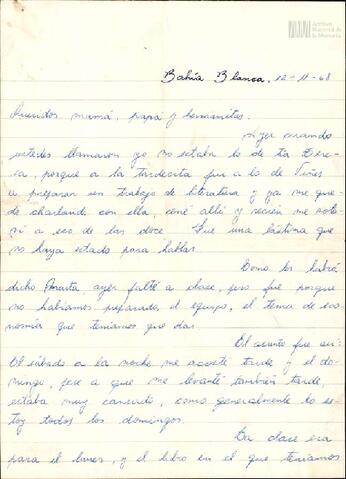 Archivo
Nacional de
la Memoria
Bahía Blanca, 12-11-68
Queridos mamá, papá y hermanitas:
Ayer cuando
ustedes llamaron yo no estaba lo de tía Tere-
sa, porque a la tardecita fui a lo de
a preparar un trabajo de literatura y ya me que-
dé charlando con ella, cené allí y recién me
a eso de las doce. Fue una lástima que
no haya estado para hablar.
Como les habrá
dicho Marta ayer falté a clase, pero fue porque
no habíamos preparado, el equipo, el tema de eco-
nomía que teníamos que dar.
El asunto fue así:
El sábado a la noche me acosté tarde y el do-
mingo, pese a que me levanté también tarde,
estaba muy cansado, como generalmente lo es-
toy todos los domingos.
La clase era
para el lunes, y el libro en el que teníamos